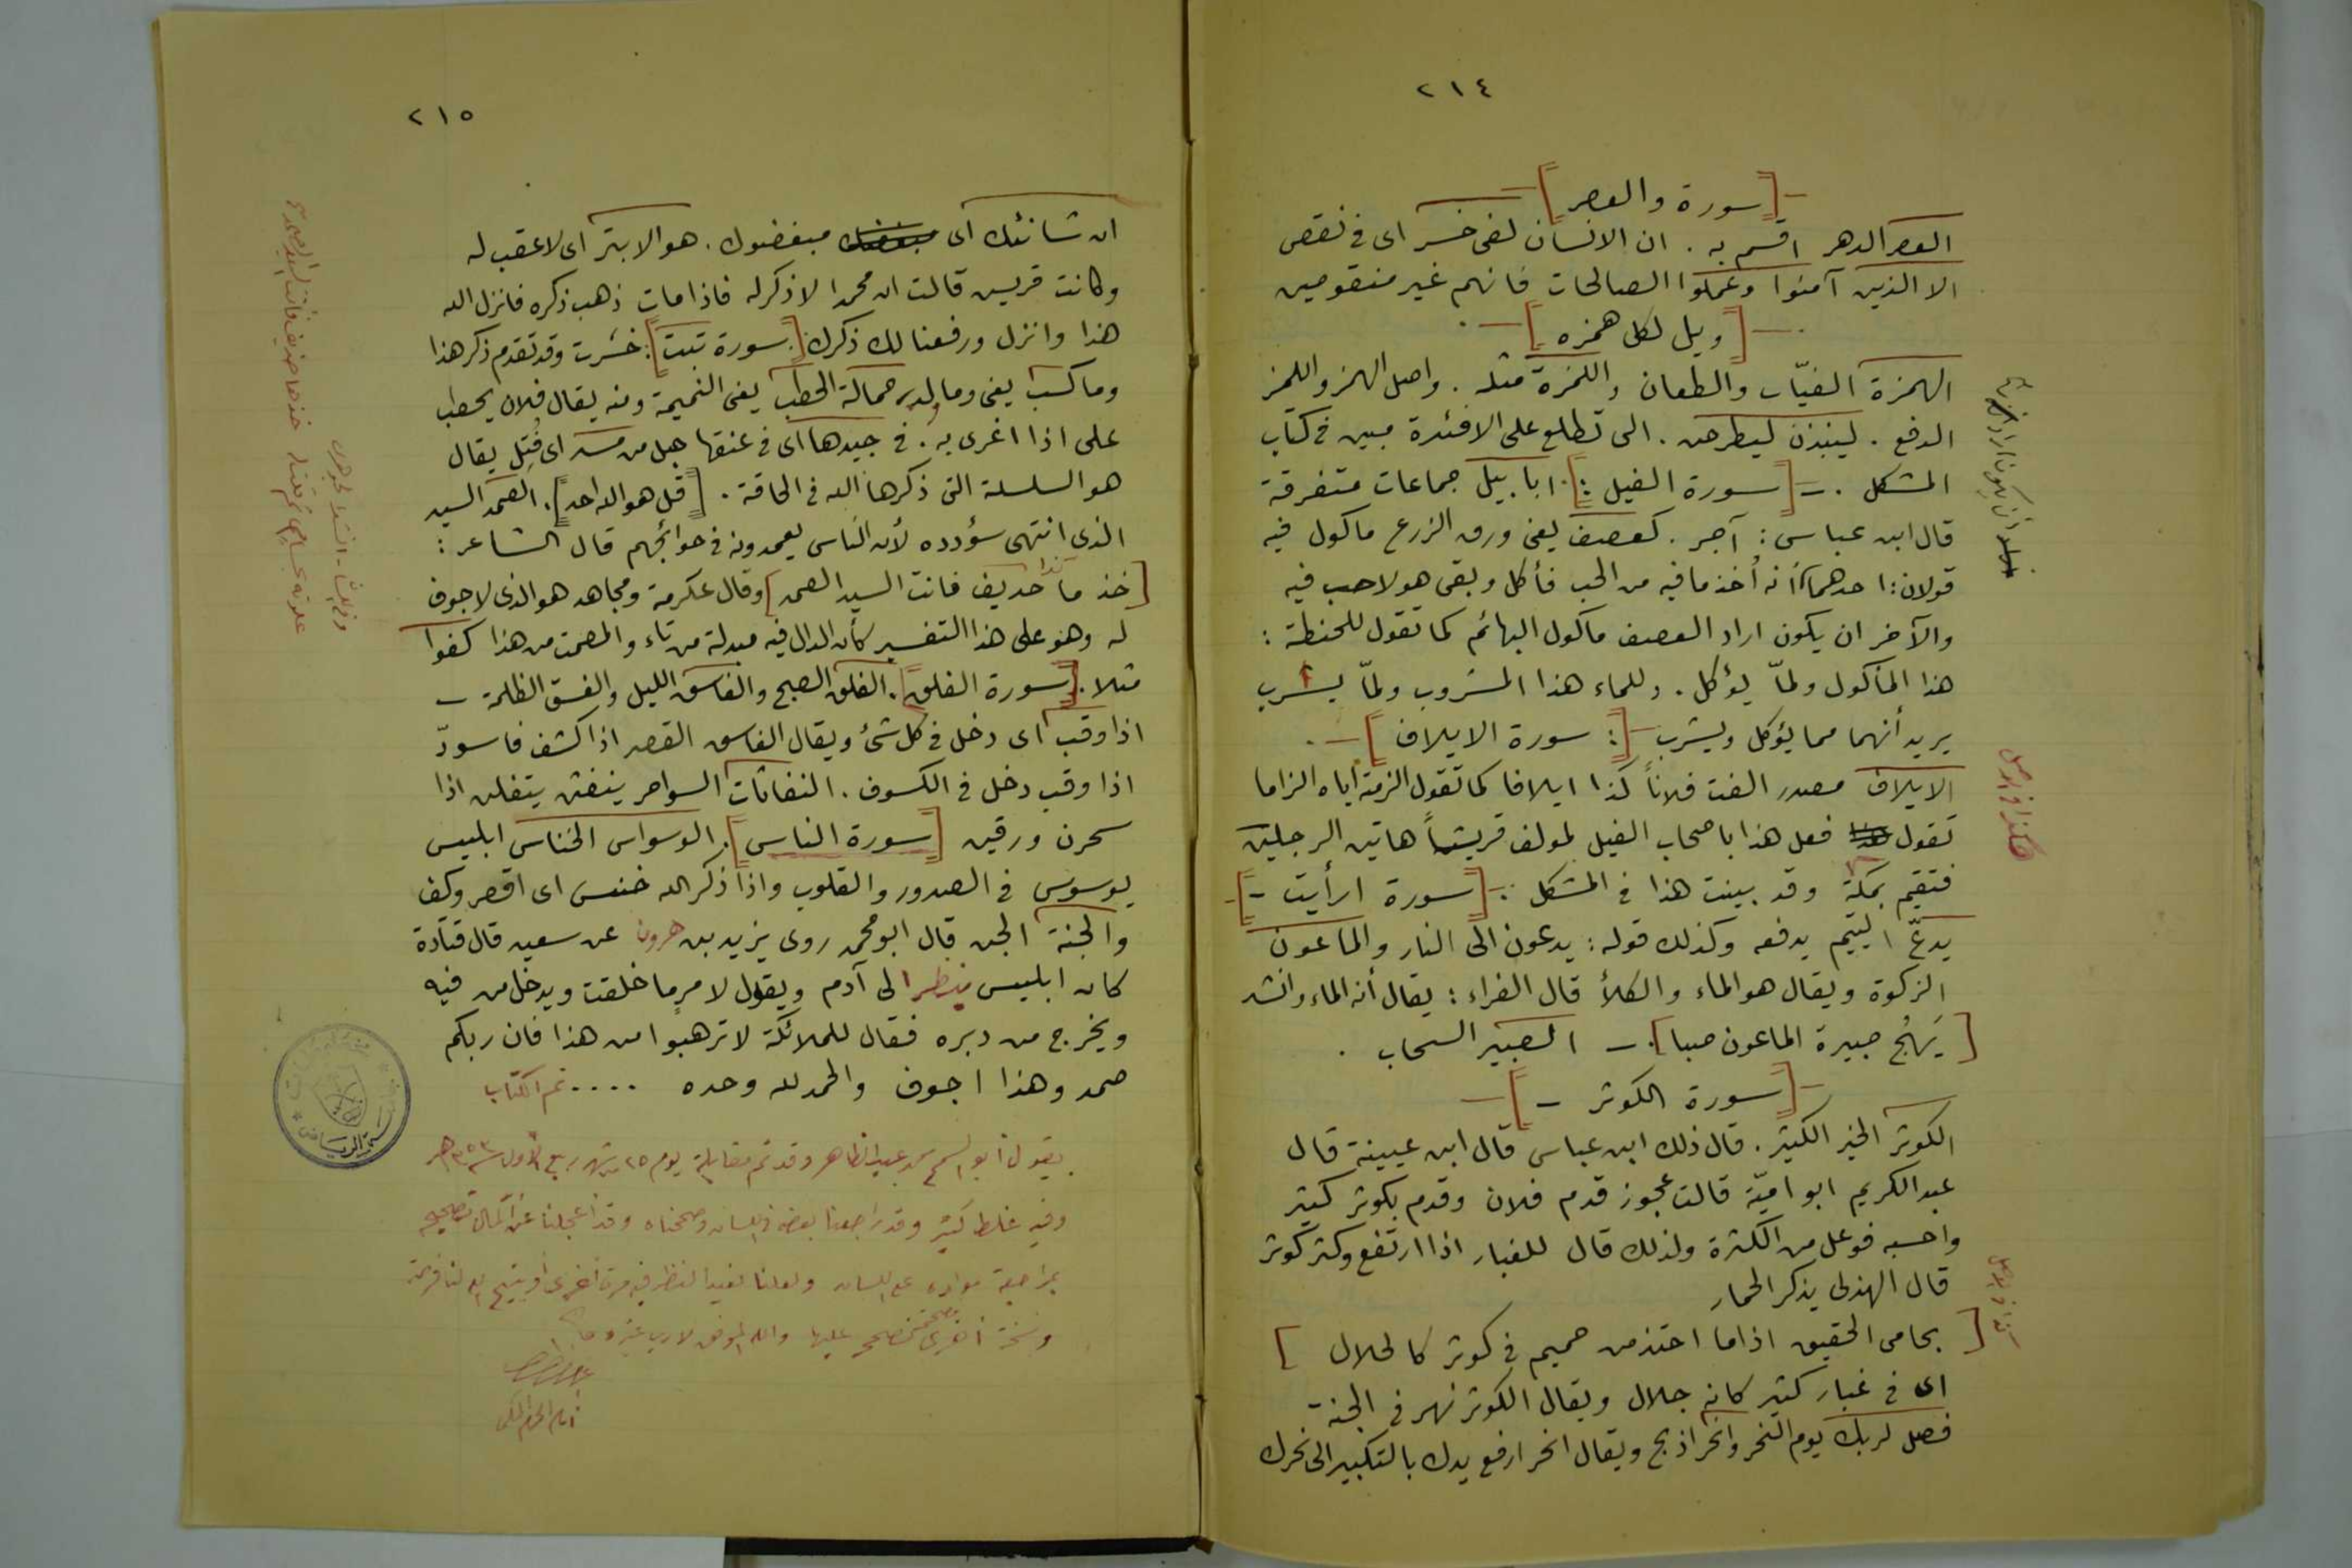 ٢١٤
[سورة والعصر]
العصر الدهر اقسم به . ان الانسان لفى خسر اى فى نقص
الا الذين آمنوا وعملوا الصالحات فانهم غير منقوصين
[ويل لكل همزه]
الهمزة الغيّاب والطعان واللمزة مثله . واصل الهمز واللمز
الدفع . لينبذن ليطرحن . التى تطلع على الافئدة مبين فى كتاب
المشكل . – [سورة الفيل :] . ابابيل جماعات متفرقة
قال ابن عباس : آجر . كعصف يعنى ورق الزرع ماكول فيه
قولان : احدهما أنه أخذ ما فيه من الحب فأكل وبقى هو لاحب فيه
والآخر ان يكون اراد العصف ماكول البهائم كما تقول للحنطة :
هذا المأكول ولمّا يؤكل . وللماء هذا المشروب ولمّا يشرب
يريد أنهما مما يؤكل ويشرب – [: سورة الايلاف] – .
الايلاف مصدر الفت فلاناً كذا ايلافا كما تقول الزمته اياه الزاما
تقول فعل هذا باصحاب الفيل لمولف قريشاً هاتين الرحلتين
فتقيم بمكة وقد بينت هذا فى المشكل : – [سورة ارأيت –]
يدعّ اليتيم يدفعه وكذلك قوله : يدعون الى النار والماعون
الزكوة ويقال هو الماء والكلأ قال الفراء : يقال أنه الماء وانشد
[يَمُجُّ صبيرة الماعون صبا] . – الصبير السحاب .
– [سورة الكوثر –] –
الكوثر الخير الكثير . قال ذلك ابن عباس قال ابن عيينة قال
عبد الكريم ابو اميّة قالت عجوز قدم فلان وقدم بكوثر كثير
واحسبه فوعل من الكثرة ولذلك قال للغبار اذا ارتفع وكثر كوثر
قال الهذلى يذكر الحمار
[يحامى الحقيق اذا ما احتذمن حميم فى كوثر كالحلال]
اى فى غبار كثير كانه جلال ويقال الكوثر نهر فى الجنة –
فصل لربك يوم النحر وانحر اذبح ويقال انحر ارفع يدك بالتكبير الى نحرك
هكذا فى الاصل
٢١٥
ان شانئك اى مبغضوك . هو الابتر اى لا عقب له
وكانت قريس قالت ان محمدا لا ذكر له فاذا مات ذهب ذكره فانزل الله
هذا وانزل ورفعنا لك ذكرك [. سورة تبت] : خسرت وقد تقدم ذكر هذا
وما كسب يعنى وما ولد . حمالة الحطب يعنى النميمة ومنه يقال فلان يحطب
على اذا اغرى به . فى جيدها اى فى عنقها حبل من مسد اى فُتِل يقال
هو السلسلة التى ذكرها الله فى الحاقة . [قل هو الله احد] . الصمد السيد
الذى انتهى سؤدده لأن الناس يعمدونه فى حوائجهم قال الشاعر :
[خذ ما كذا حذيف فانت السيد الصمد] وقال عكرمة ومجاهد هو الذى لا جوف
له وهو على هذا التفسير كأن الدال فيه مبدلة من تاء والمصمت من هذا كفوا
مثلا . [سورة الفلق] . الفلق الصبح والغاسق الليل والغسق الظلمة –
اذا وقب اى دخل فى كل شئ ويقال الغاسق القمر اذا كسف فاسودّ
اذا وقب دخل فى الكسوف . النفاثات السواحر ينفثن يتفلن اذا
سحرن ورقين [سورة الناس] . الوسواس الخناس ابليس
يوسوس فى الصدور والقلوب واذا ذكر الله خنس اى اقصر وكف
والجنة الجن قال ابو محمد روى يزيد بن هرون عن سعيد قال قتادة
كان ابليس ينظر الى آدم ويقول لامر ما خلقت ويدخل من فيه
ويخرج من دبره فقال للملائكة لا ترهبوا من هذا فان ربكم
صمد وهذا اجوف والحمد لله وحده .... تم الكتاب
يقول أبو السمح محمد عبد الظاهر وقد تم مقابلة يوم ٢٥ من شهر ربيع الأول سنة ١٣٥٣ هـ
وفيه غلط كثير وقد راجعنا بعضه فى اللسان وصححناه وقد أعجلنا عن اكمال تصحيحه
بمراجعة مواده على اللسان ولعلنا نعيد النظر فيه مرة أخرى أو يتيح الله لنا فرصة
ونسخة أخرى نصحح عليها والله الموفق لا رب غيره
امام الحرم المكى